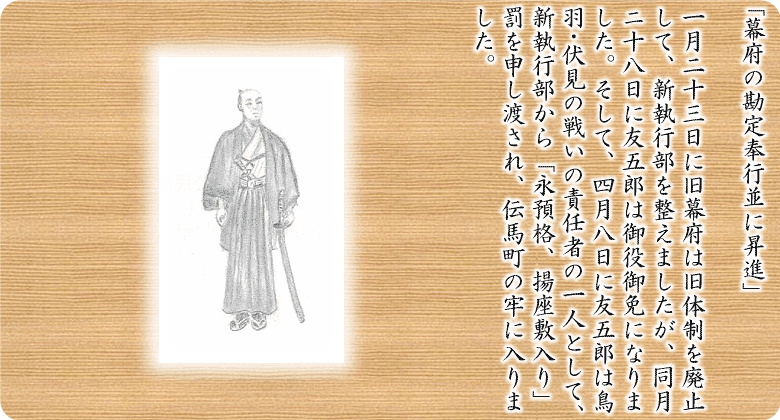 「幕府の勘定奉行並に昇進」
一月二十三日に旧幕府は旧体制を廃止
して、新執行部を整えましたが、同月
二十八日に友五郎は御役御免になりま
した。そして、四月八日に友五郎は鳥
羽・伏見の戦いの責任者の一人として、
新執行部から「永預格、揚座敷入り」
罰を申し渡され、伝馬町の牢に入りま
した。